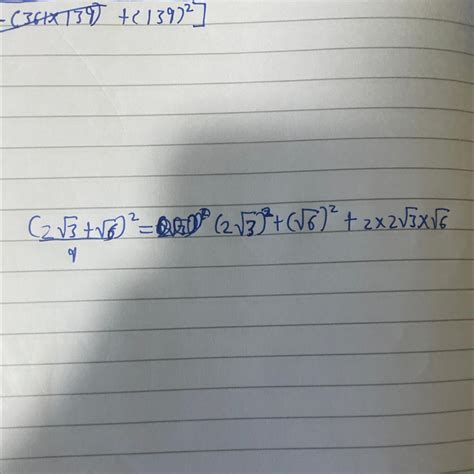 - (361×139) + (139)²]
(2√3 + √6)² = (2√3)² + (√6)² + 2×2√3×√6